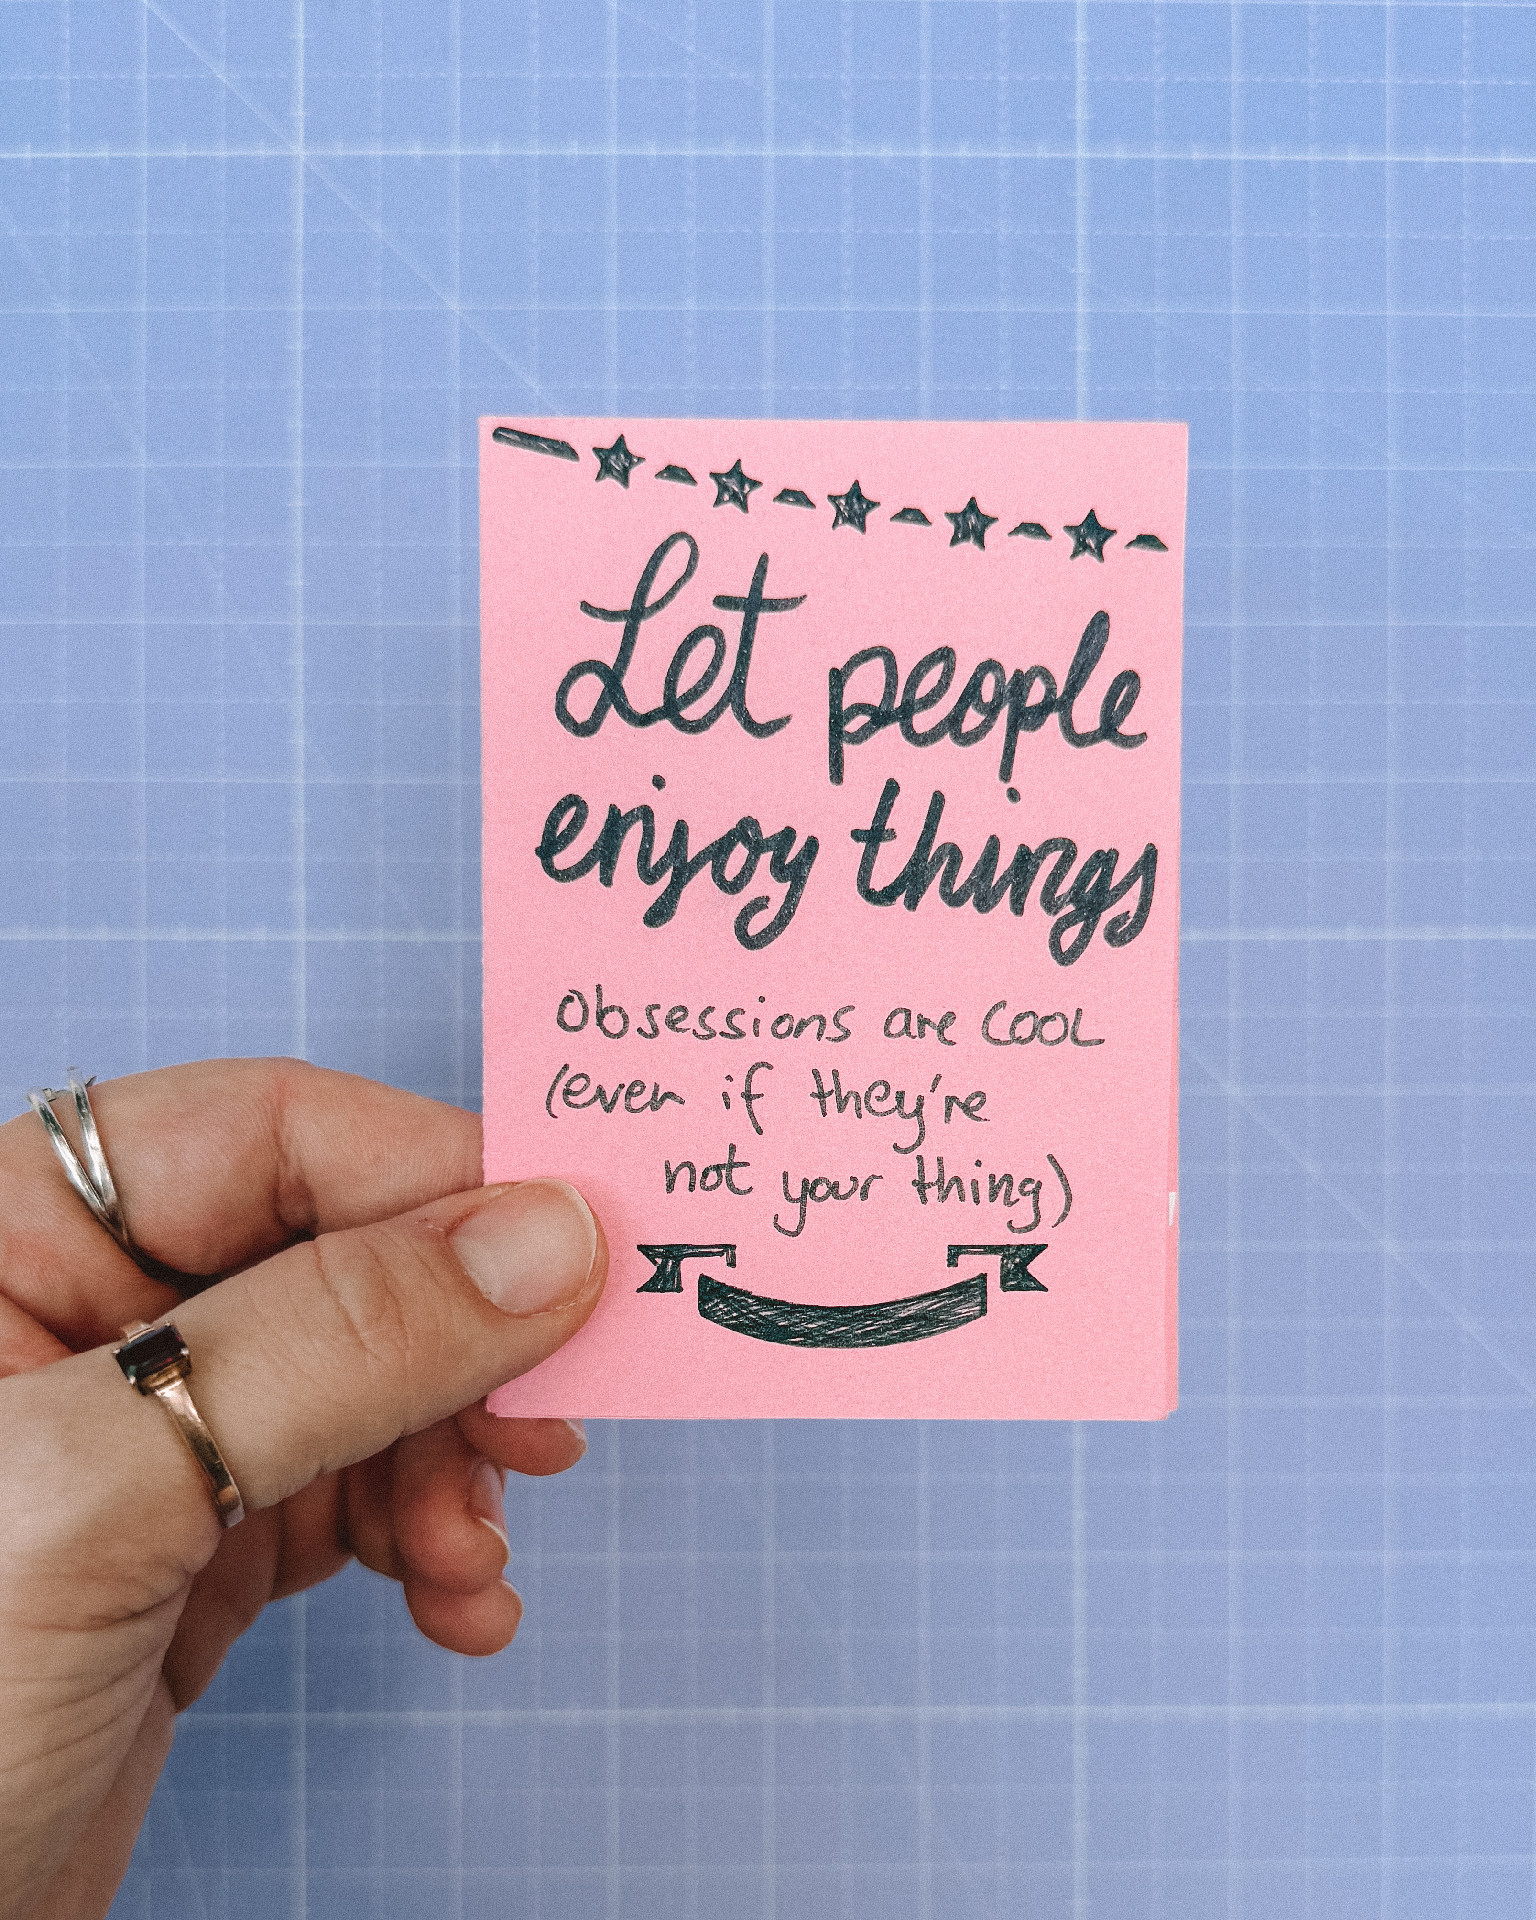 Let people
enjoy things
Obsessions are COOL
(even if they're
not your thing)